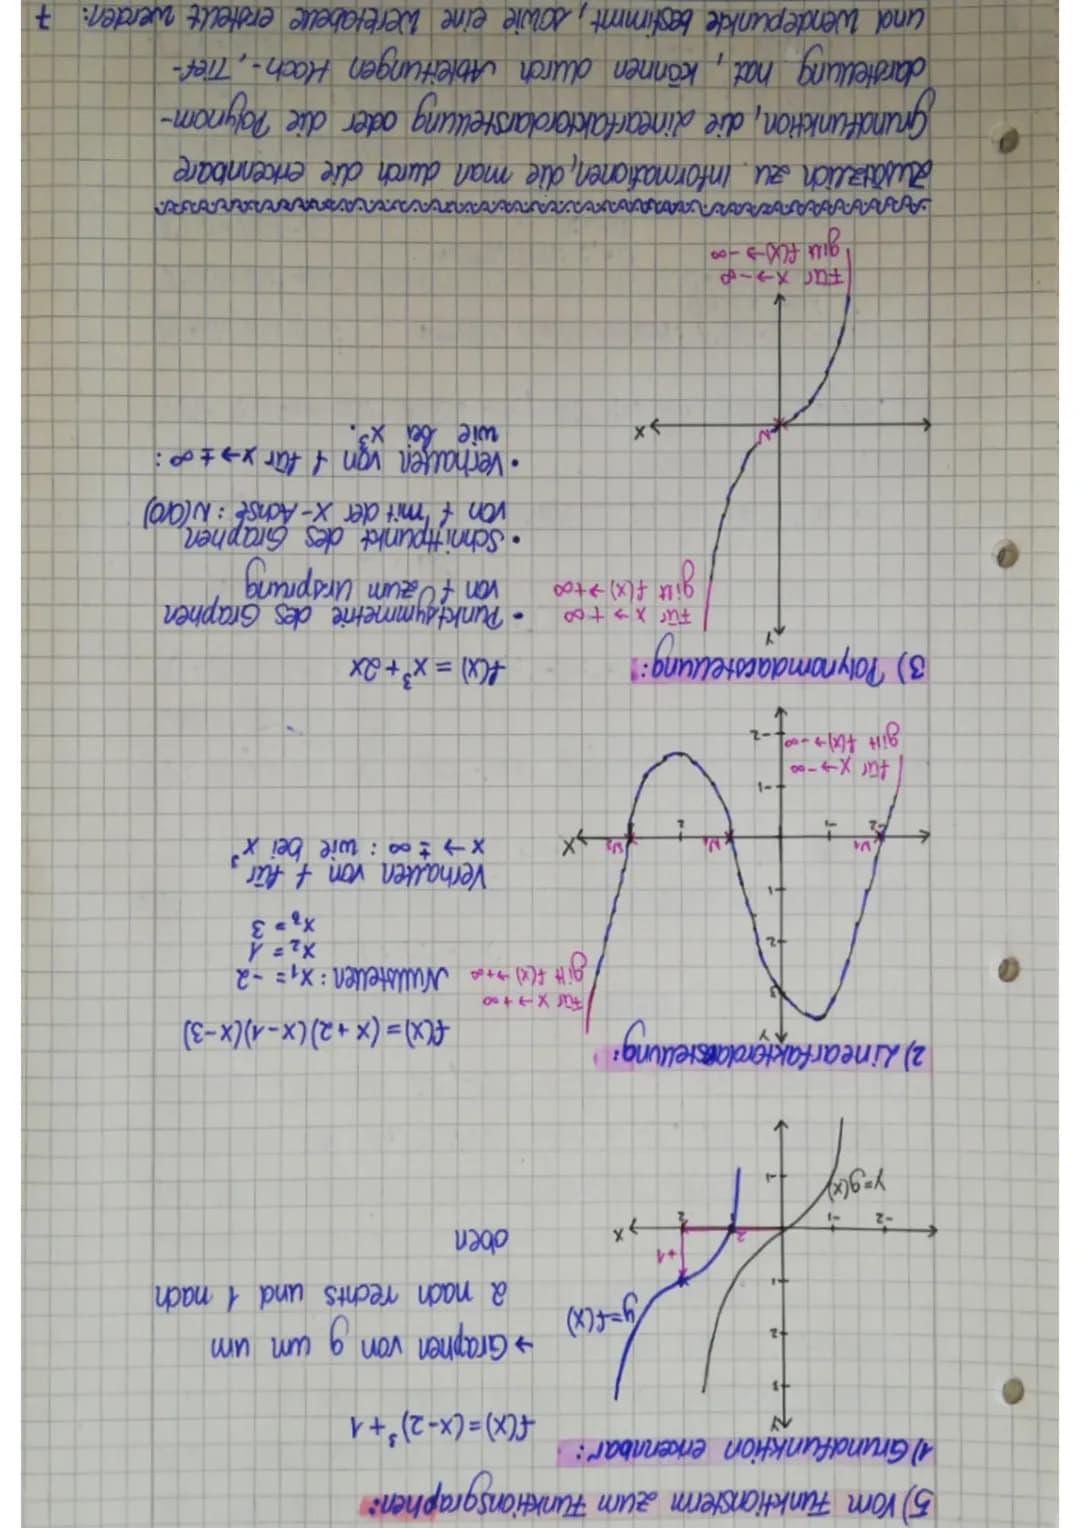 5) Vom Funktionsterm zum Funktionsgraphen:
1) Grundfunktion erkennbar:
f(x) = (x-2)³ + 1
→ Graphen von g um um
2 nach rechts und 1 nach
oben
Y
3
2
1
-1
-2
-1
1
2
X
y=f(x)
y=g(x)
+1
2
2) Linearfaktordarstellung:
f(x) = (x+2)(x-1)(x-3)
Nullstellen: x₁ = -2
x₂ = 1
x₃ = 3
Verhalten von f für
x → ±∞ : wie bei x³
Y
3
2
1
-1
-2
-2
-1
2
X
N₁
N₂
für x → +∞
gilt f(x) → +∞
für x → -∞
gilt f(x) → -∞
3) Polynomdarstellung:
f(x) = x³ + 2x
• Punktsymmetrie des Graphen
von f zum Ursprung
• Schnittpunkt des Graphen
von f mit der X-Achse : N(0|0)
• Verhalten von f für x → ±∞ :
wie bei x³.
Y
X
N
Für x → +∞
gilt f(x) → +∞
Für x → -∞
gilt f(x) → -∞
Zusätzlich zu Informationen, die man durch die erkennbare
Grundfunktion, die Linearfaktordarstellung oder die Polynom-
darstellung hat, können durch Ableitungen Hoch-, Tief-
und Wendepunkte bestimmt, sowie eine Wertetabelle erstellt werden. 7